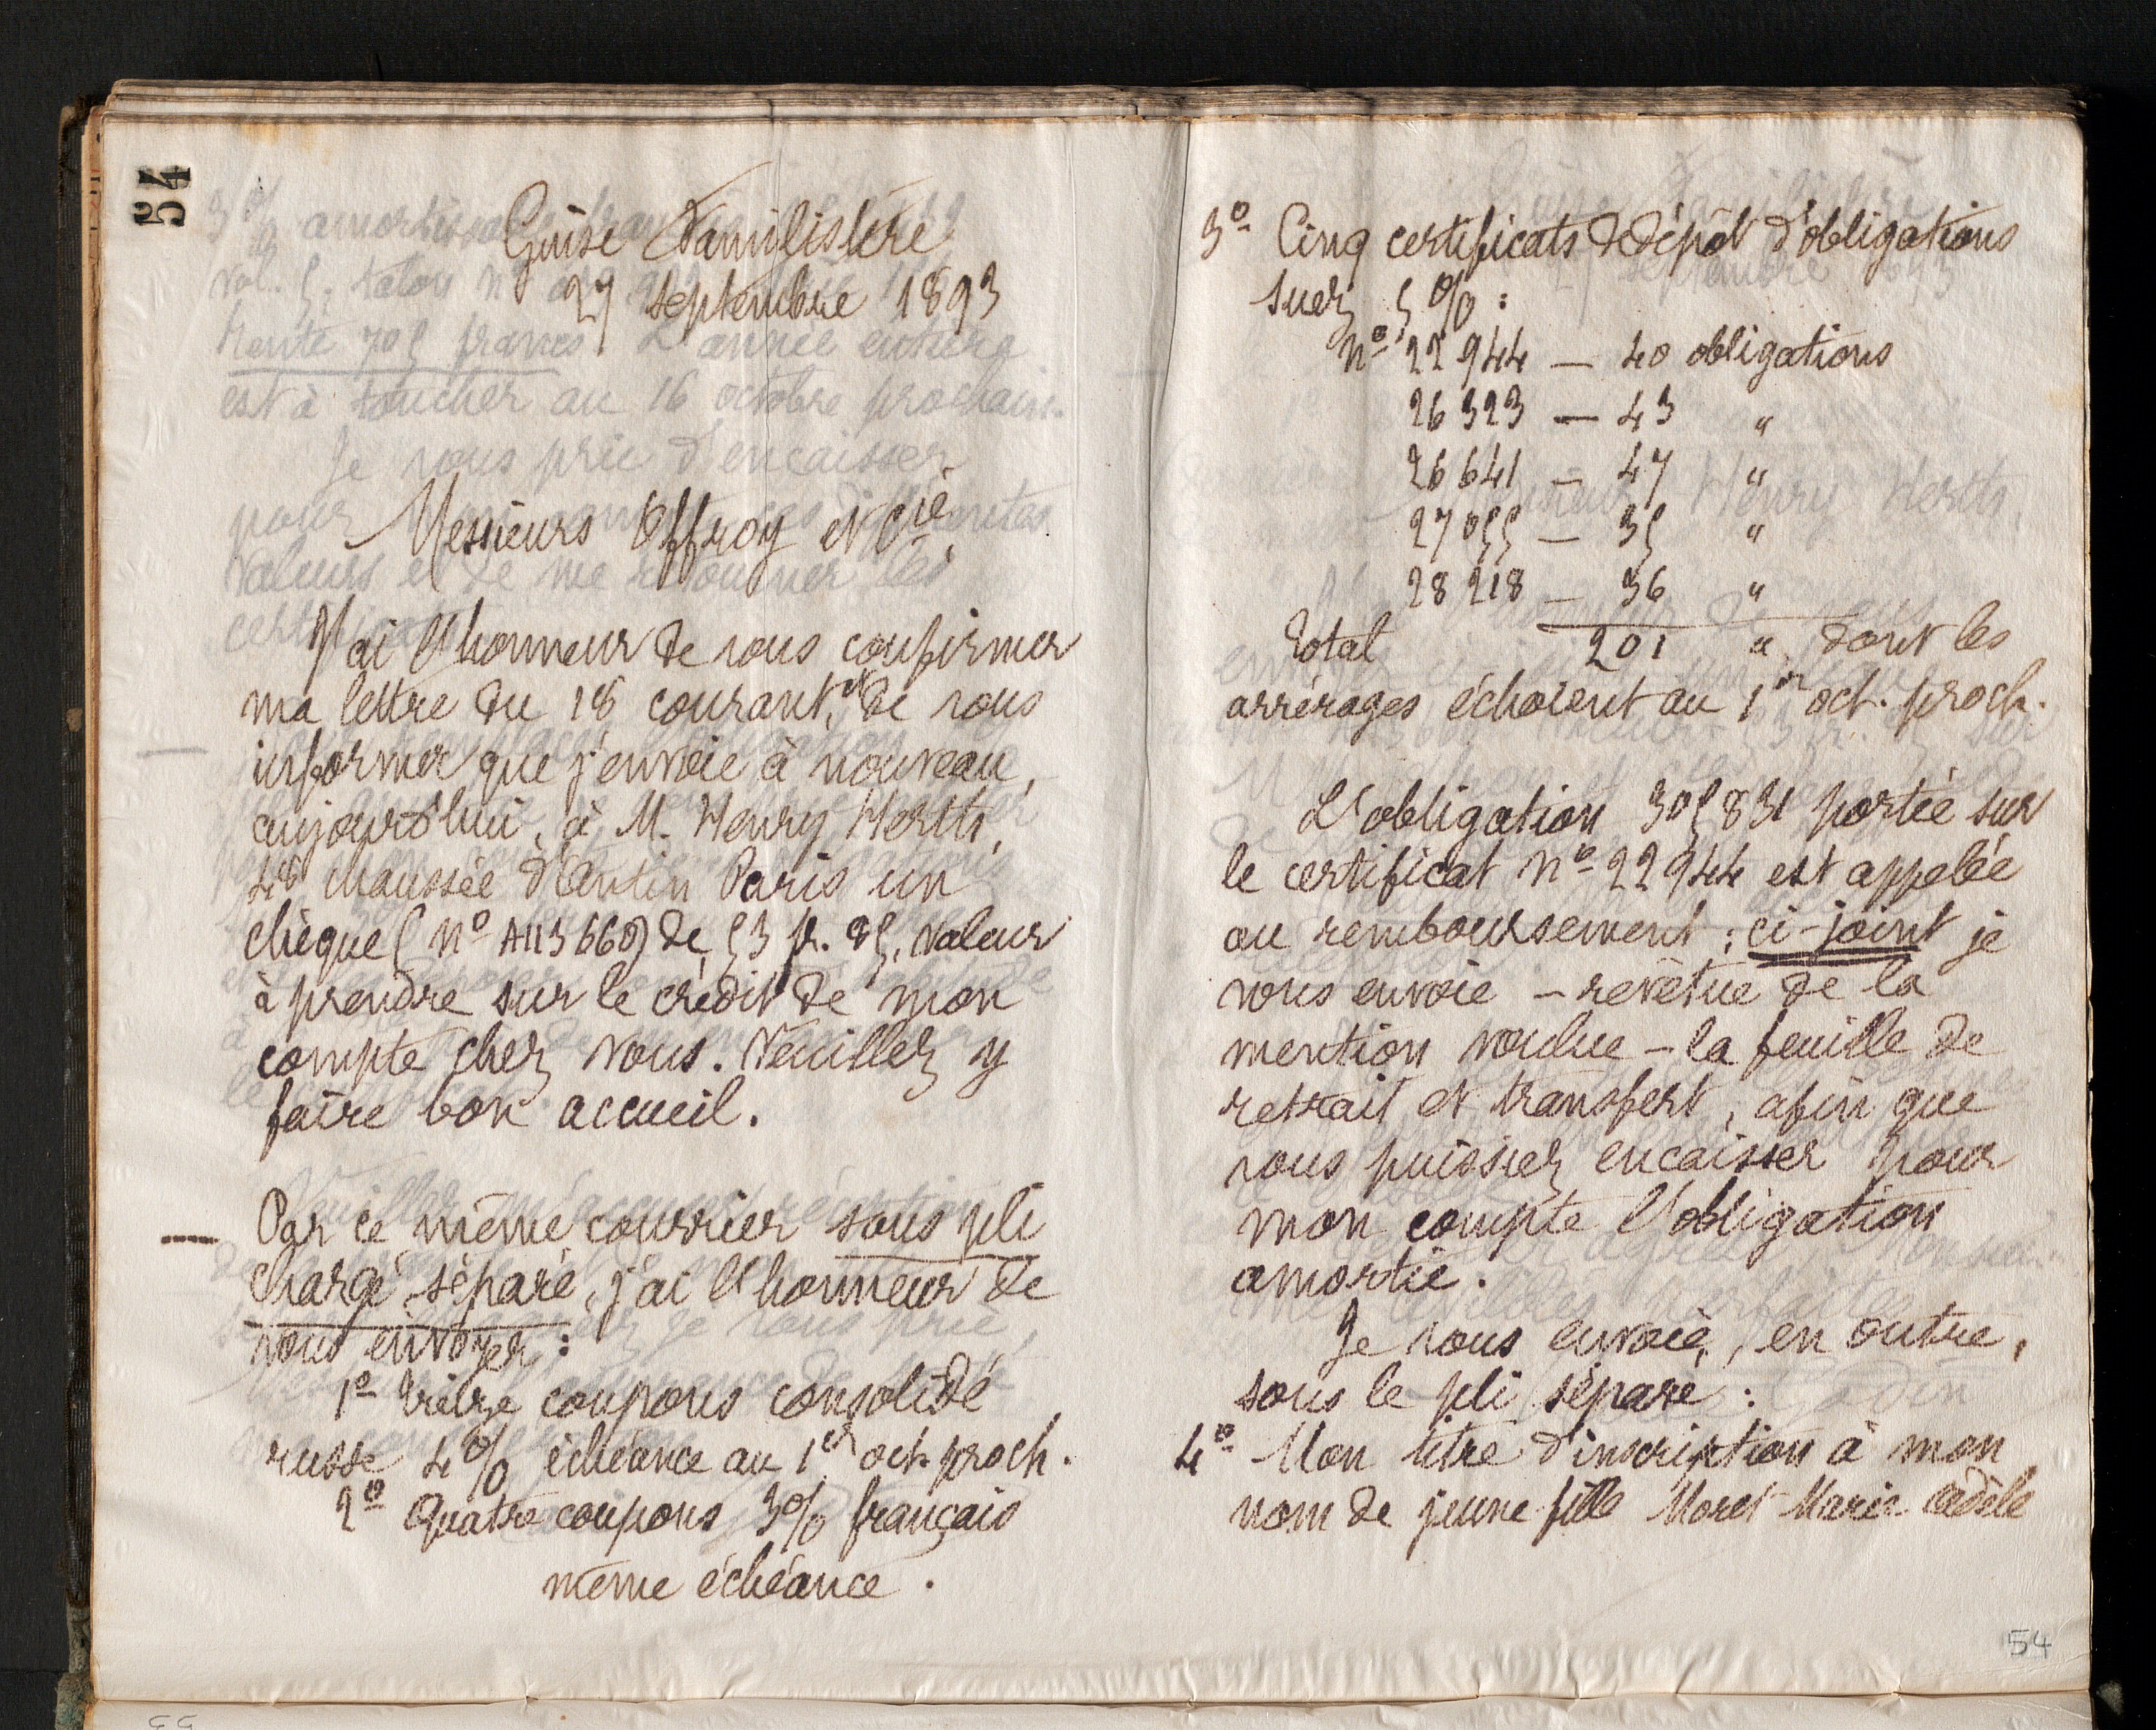 54
Guise Familistère
27 septembre 1893
Messieurs Offroy et Cie.
J'ai l'honneur de vous confirmer
ma lettre du 18 courant, et de vous
informer que j'envoie à nouveau,
aujourd'hui, à M. Henry Herth,
48 Chaussée d'Antin Paris un
chèque (no A113660) de 53 fr. 85, valeur
à prendre sur le crédit de mon
compte chez vous. Veuillez y
faire bon accueil.
Par ce même courrier sous pli
chargé, séparé, j'ai l'honneur de
vous envoyer :
1o Treize coupons consolidé
russe 4 % échéance au 1er oct. proch.
2o Quatre coupons 3% français
même échéance.
3o Cinq certificats de dépôt d'obligations
Suez 5 % :
no 22 944 — 40 obligations
26 323 — 43 "
26 641 — 47 "
27 055 — 35 "
28 218 — 36 "
Total 201 " dont les
arrérages échoient au 1er oct. proch.
L'obligation 305 831 portée sur
le certificat no 22 944 est appelée
au remboursement ; ci-joint je
vous envoie — revêtue de la
mention voulue — la feuille de
retrait et transfert, afin que
vous puissiez encaisser pour
mon compte l'obligation
amortie.
Je vous envoie, en outre,
sous le pli séparé :
4o Mon titre d'inscription à mon
nom de jeune fille Moret Marie Adèle
54